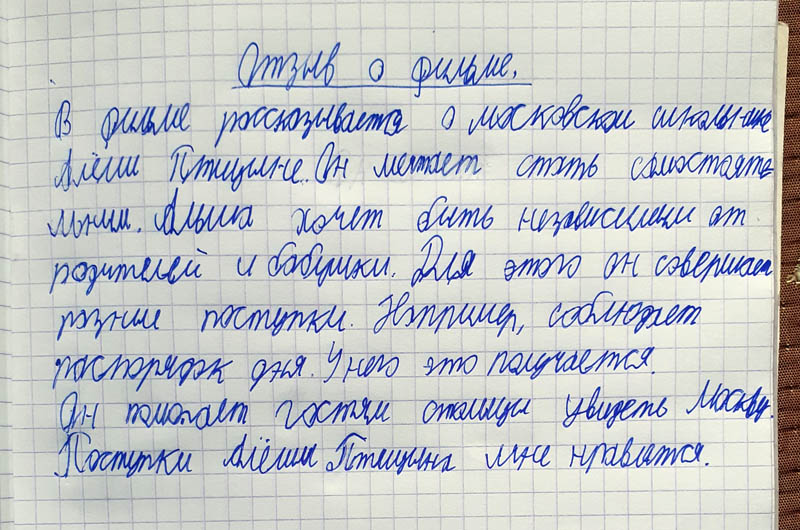 Отзыв о фильме.
В фильме рассказывается о московском школьнике
Алёше Птицыне. Он мечтает стать самостояте-
льным. Алёша хочет быть независимым от
родителей и бабушки. Для этого он совершает
разные поступки. Например, соблюдает
распорядок дня. У него это получается.
Он помогает гостям столицы увидеть Москву.
Поступки Алёши Птицына мне нравятся.